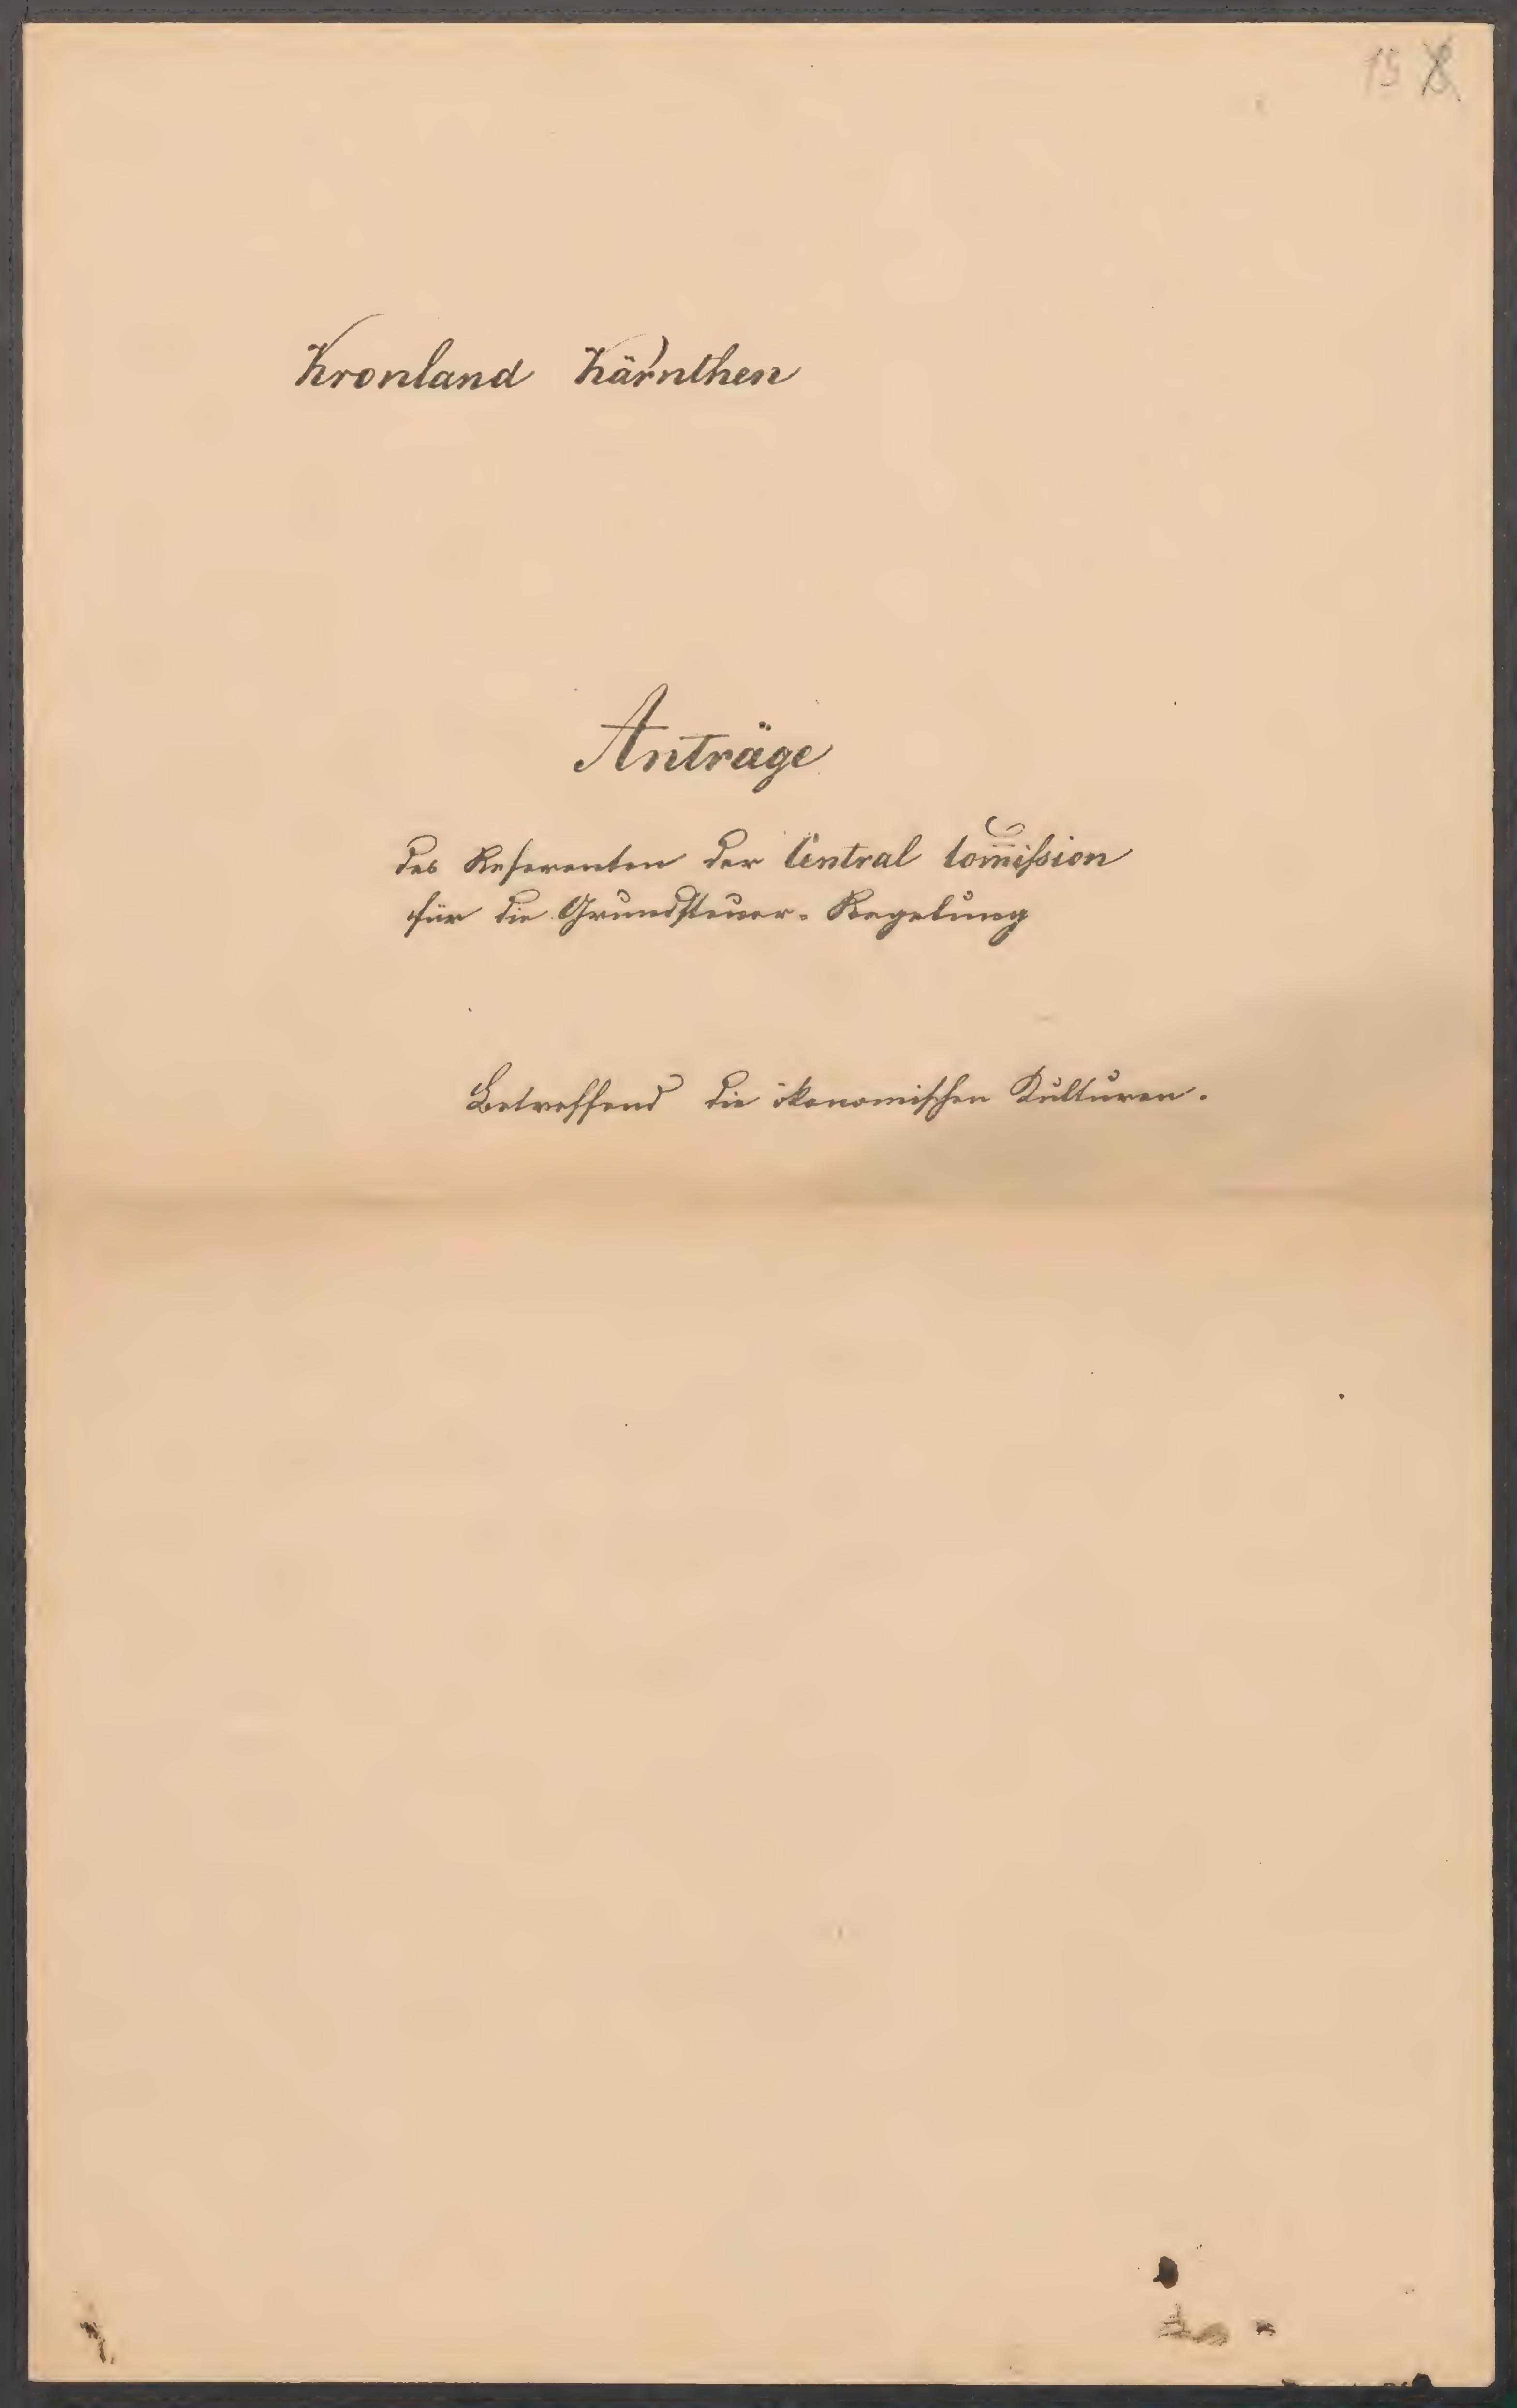 15
Kronland Kärnthen
Anträge
des Referenten der Central Com̅ißion
für die Grundsteuer-Regelung
Betreffend die ökonomischen Kulturen.